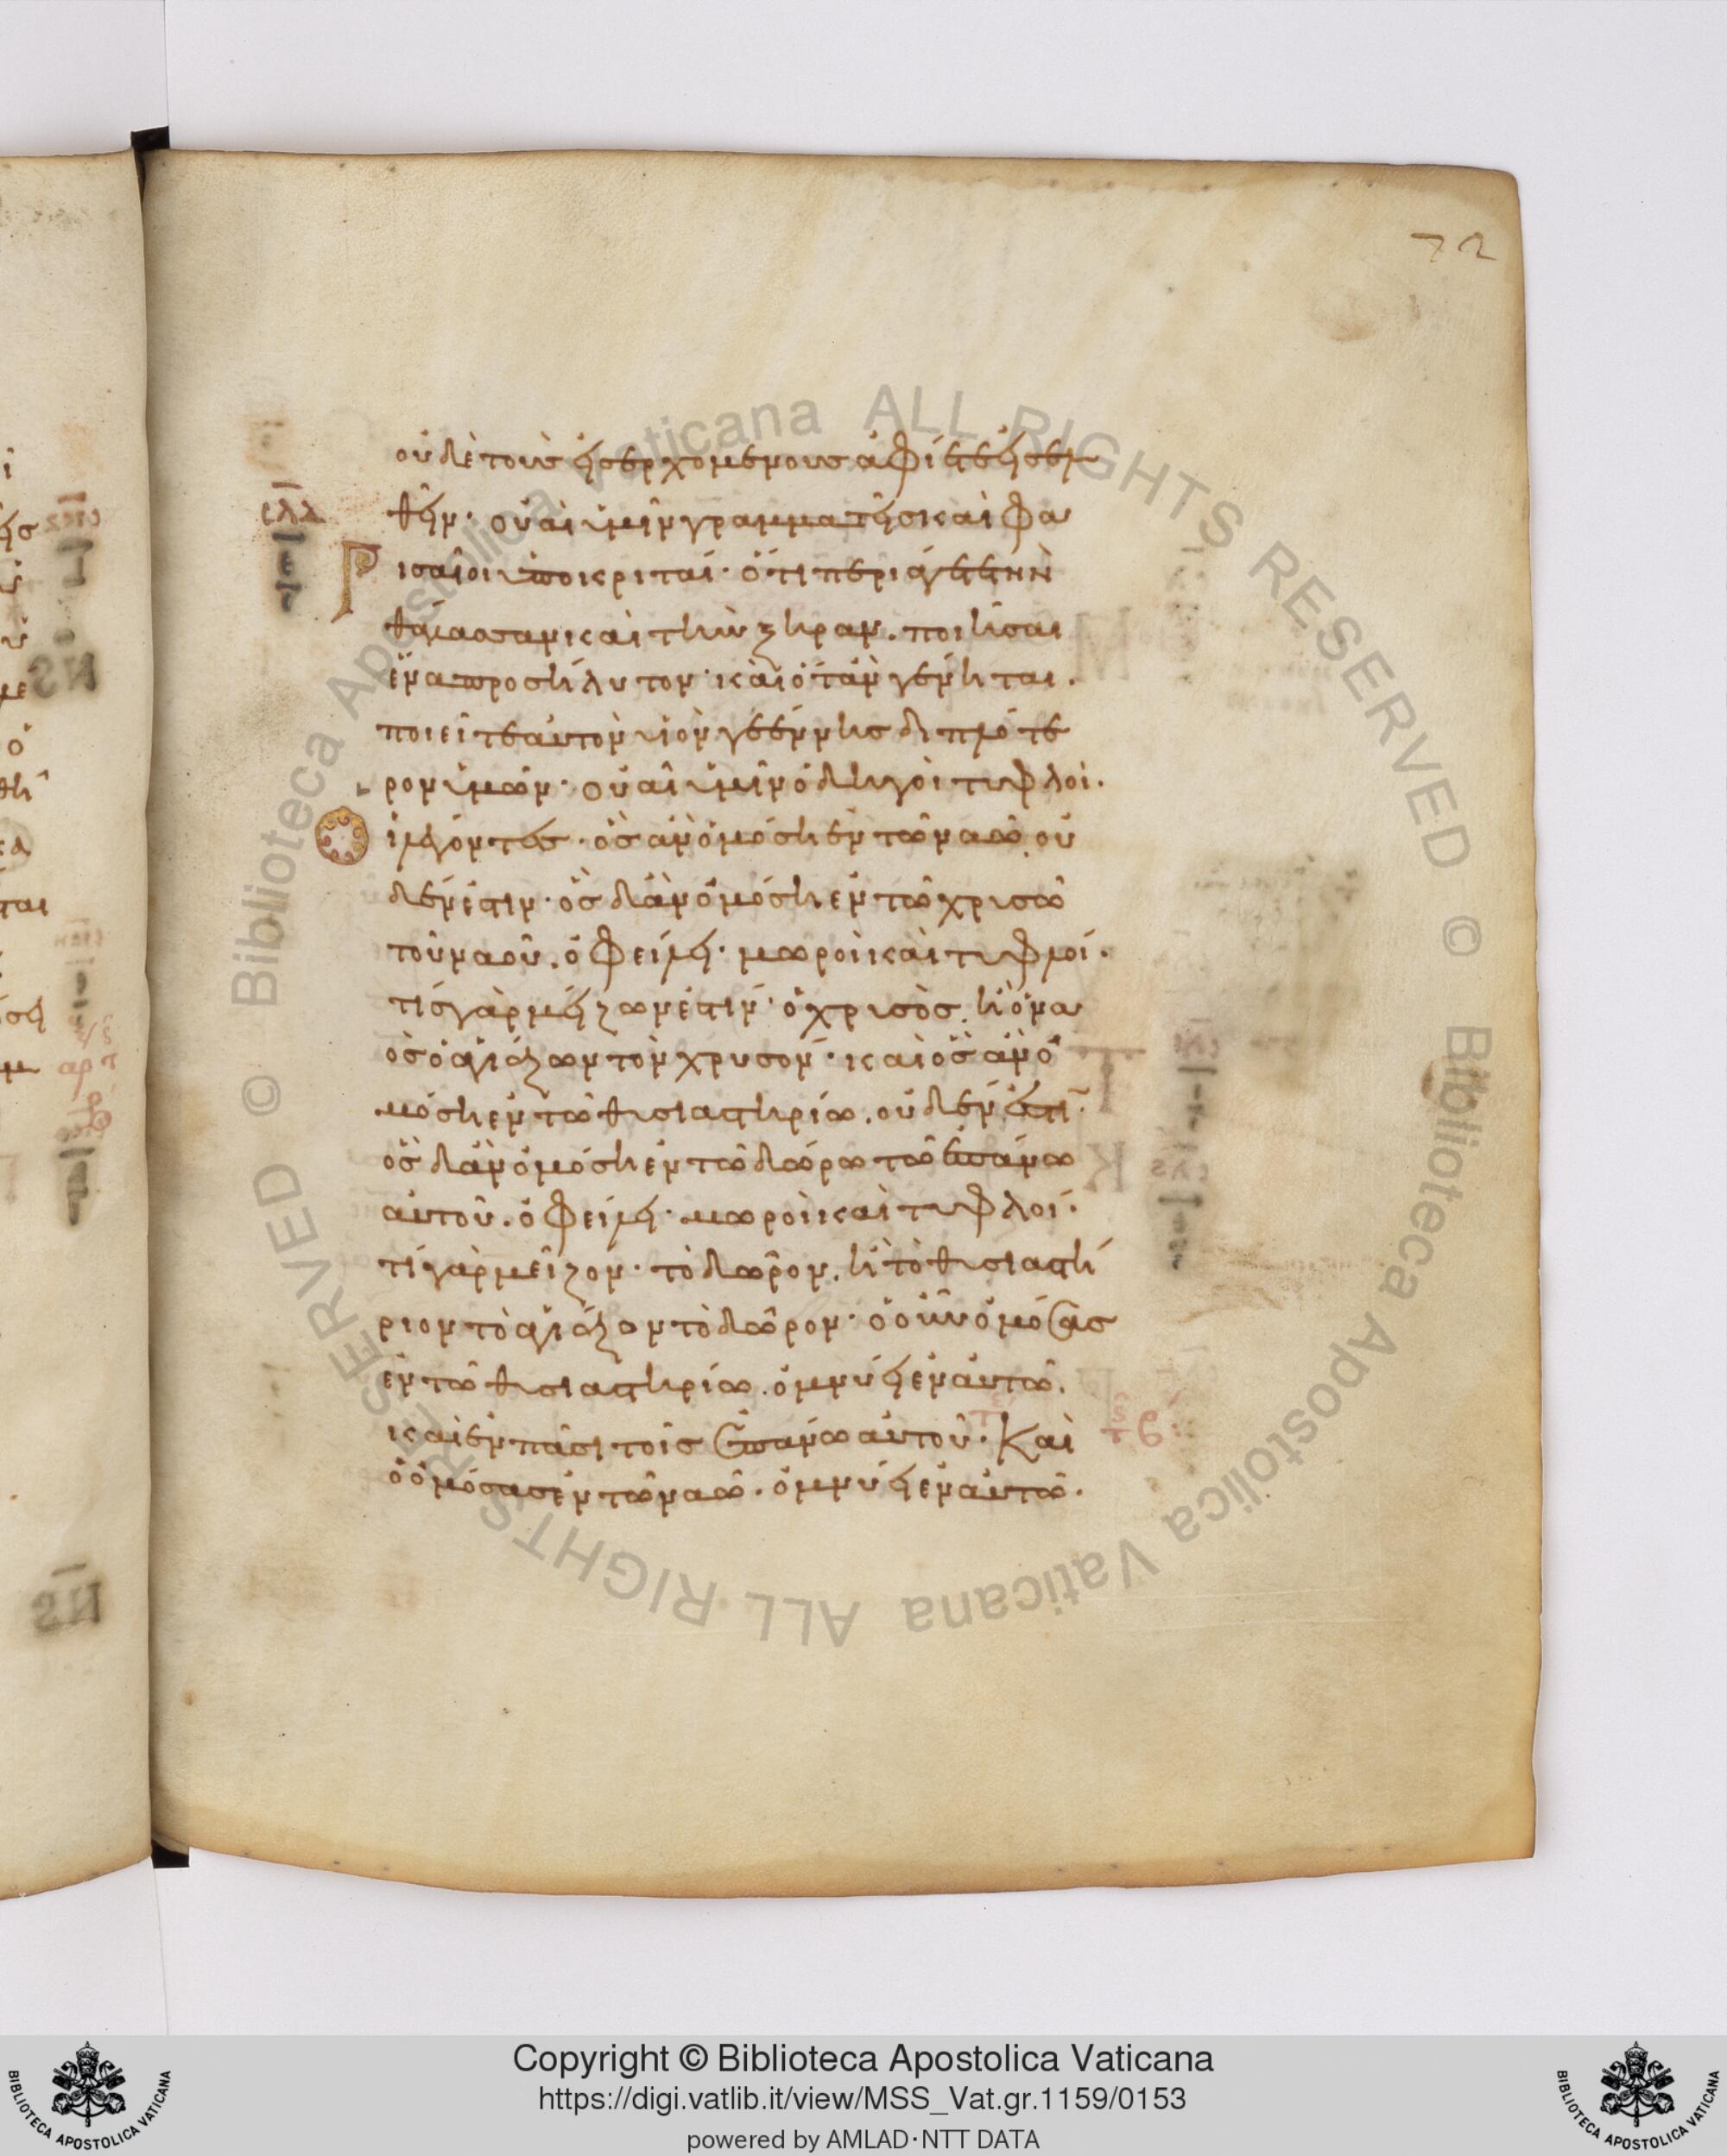 72
οὐδὲ τοὺς εἰσερχομένους ἀφίετε εἰσελ
θεῖν· οὐαὶ ὑμῖν γραμματεῖς καὶ φα
ρισαῖοι ὑποκριταί· ὅτι περιάγετε τὴν
θάλασσαν καὶ τὴν ξηραν. ποιῆσαι
ἕνα προσήλυτον· καὶ ὅταν γένηται.
ποιεῖτε αὐτὸν υἱὸν γεέννης διπλότε
ρον ὑμῶν· οὐαὶ ὑμῖν ὁδηγοὶ τυφλοί.
οἱ λέγοντες· ὃς ἂν ὀμόση ἐν τῶ ναῶ οὐ
δέν ἐστιν· ὃς δ' ἂν ὀμόση ἐν τῶ χρυσῶ
τοῦ ναοῦ. ὀφείλει· μωροὶ καὶ τυφλοί.
τίς γὰρ μείζων ἐστίν· ὁ χρυσὸς. ἢ ὁ να
ὸς ὁ ἁγιάζων τὸν χρυσον· καὶ ὃς ἂν ὀ
μόση ἐν τῶ θυσιαστηρίω. οὐδέν ἐστι·
ὃς δ' ἂν ὀμόση ἐν τῶ δώρω τῶ ἐπάνω
αὐτοῦ. ὀφείλει· μωροὶ καὶ τυφλοί·
τί γὰρ μεῖζον· τὸ δῶρον. ἢ τὸ θυσιαστή
ριον τὸ ἁγιάζον τὸ δῶρον· ὁ οὖν ὀμόσας
ἐν τῶ θυσιαστηρίω. ὀμνύει ἐν αὐτῶ.
καὶ ἐν πᾶσι τοῖς ἐπάνω αὐτοῦ· Καὶ
ὁ ὀμόσας ἐν τῶ ναῶ. ὀμνύει ἐν αὐτῶ.
Copyright © Biblioteca Apostolica Vaticana
https://digi.vatlib.it/view/MSS_Vat.gr.1159/0153
powered by AMLAD·NTT DATA
BIBLIOTECA APOSTOLICA VATICANA
BIBLIOTECA APOSTOLICA VATICANA
© Biblioteca Apostolica Vaticana ALL RIGHTS RESERVED
© Biblioteca Apostolica Vaticana ALL RIGHTS RESERVED